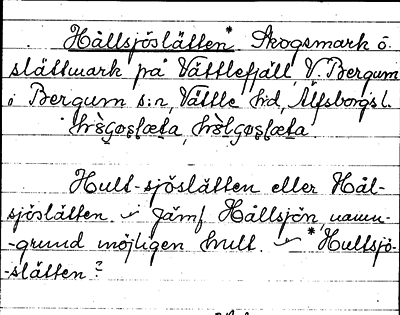 Hållsjöslätten* Skogsmark o.
slättmark på Vättlefjäll, V. Bergum
i Bergum s:n, Vättle hd, Älfsborgs l.
Hult-sjöslätten eller Hål-
sjöslätten. Jämf. Hållsjön, namn-
-grund möjligen hult. *Hultsjö-
-slätten?